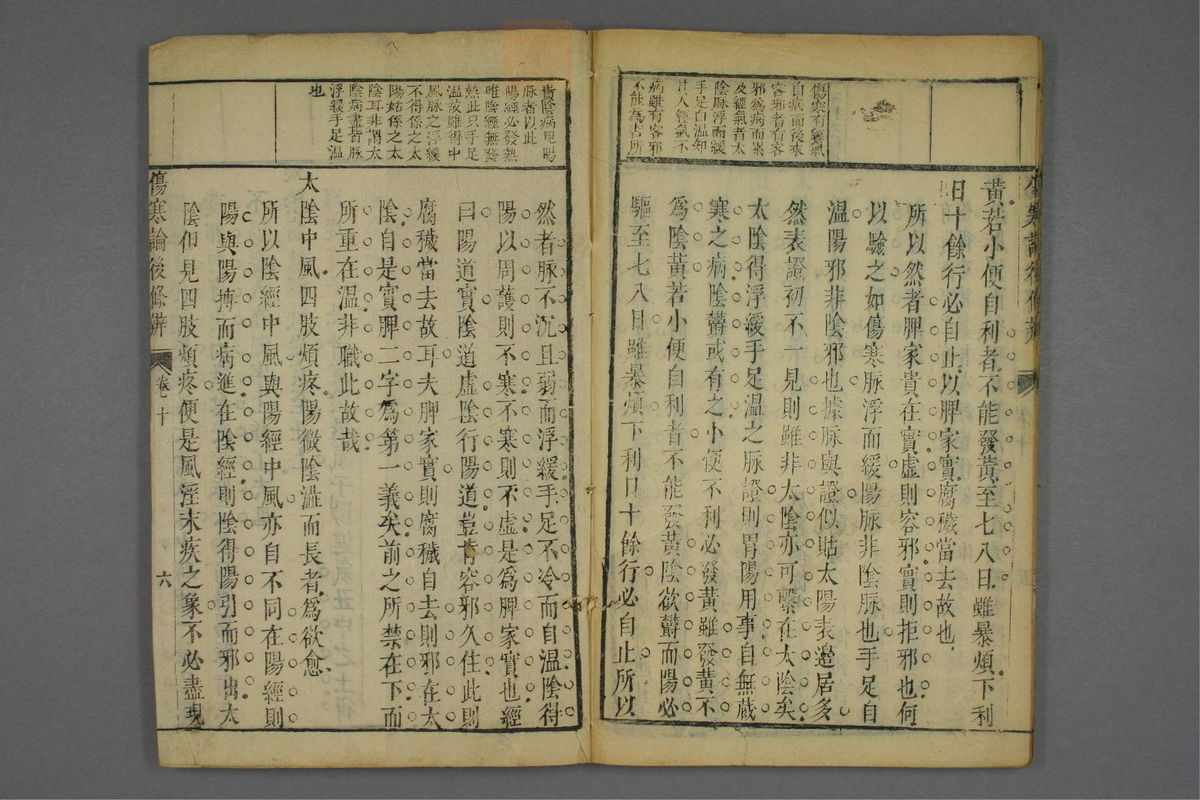 傷寒有經氣
自病而後來
客邪者有客
邪爲病而累
及經氣者太
陰脉浮而緩
手足自溫却
其人經氣不
病雖有客邪
不能爲害所
黃若小便自利者不能發黃至七八日雖暴煩下利
日十餘行必自止以脾家實腐穢當去故也
所以然者脾家貴在實虛則容邪實則拒邪也何
以驗之如傷寒脉浮而緩陽脉非陰脉也手足自
溫陽邪非陰邪也據脉與證似貼太陽表邊居多
然表證初不一見則雖非太陰亦可繫在太陰矣
太陰得浮緩手足溫之脉證則胃陽用事自無藏
寒之病陰鬱或有之小便不利必發黃雖發黃不
爲陰黃若小便自利者不能發黃陰欲鬱而陽必
驅至七八日雖暴煩下利日十餘行必自止所以
陰病見陽
脉者以此
陽經必發熱
唯陰經無發
熱此只手足
溫故雖得中
風脉之浮緩
不得係之太
陽姑係之太
陰耳非謂太
陰病盡皆脉
浮緩手足溫
也
然者脉不沉且弱而浮緩手足不冷而自溫陰得
陽以周護則不寒不寒則不虛是爲脾家實也經
曰陽道實陰道虛陰行陽道豈肯容邪久住此則
腐穢當去故耳夫脾家實則腐穢自去則邪在太
陰自是實脾二字爲第一義矣前之所禁在下而
所重在溫非職此故哉
太陰中風四肢煩疼陽微陰澁而長者爲欲愈
所以陰經中風與陽經中風亦自不同在陽經則
陽與陽搏而病進在陰經則陰得陽引而邪出太
陰但見四肢煩疼便是風淫末疾之象不必盡現
傷寒論後條辨 卷十 六